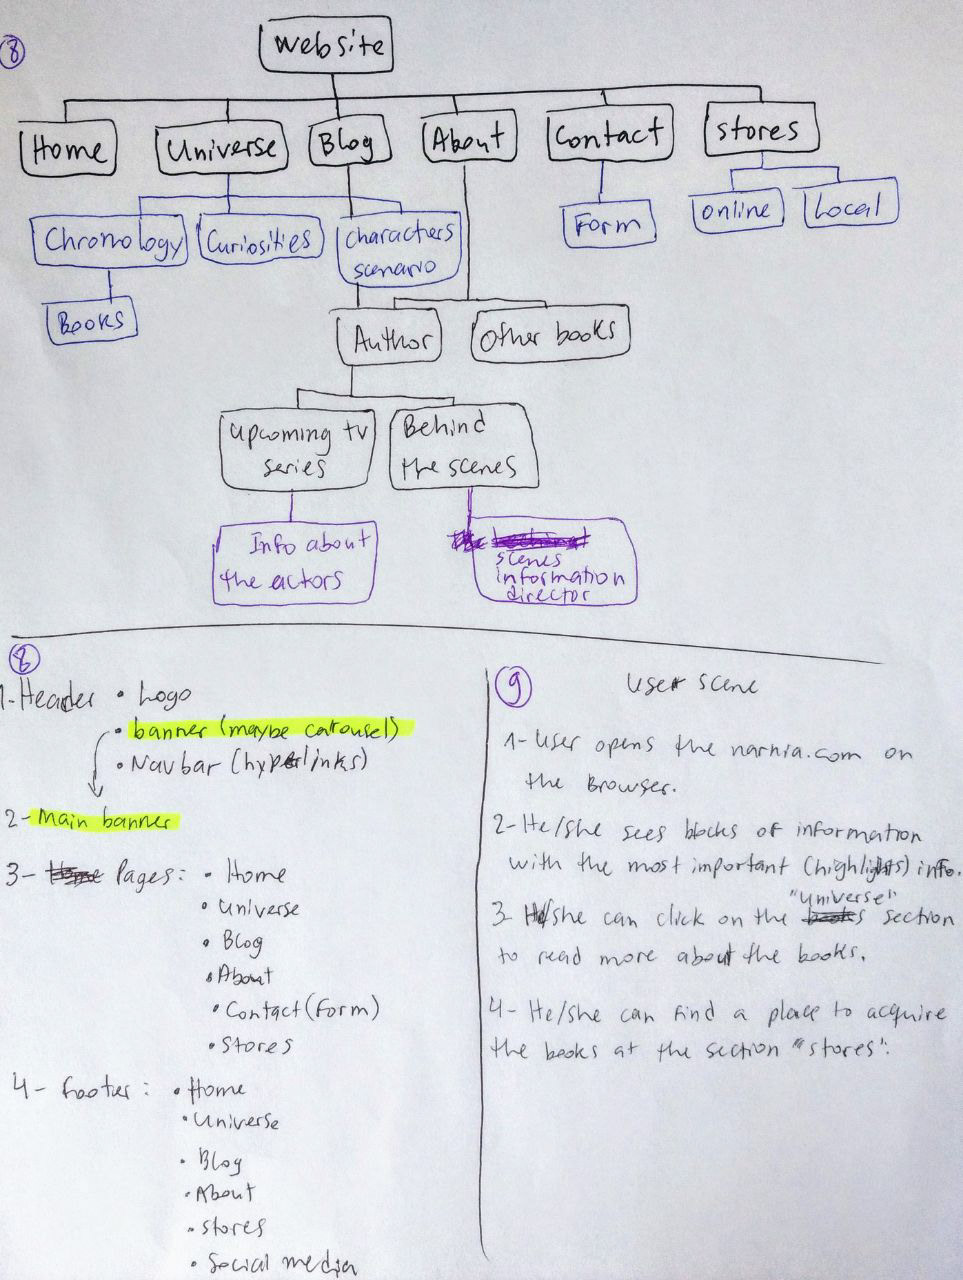 8
website
Home
Universe
Blog
About
Contact
stores
Chronology
Curiosities
characters
scenario
Form
online
Local
Books
Author
Other books
upcoming tv
series
Behind
the scenes
Info about
the actors
scenes
information
director
8
1-Header • Logo
• banner (maybe carousel)
• Navbar (hyperlinks)
2- Main banner
3- Home Pages: • Home
• Universe
• Blog
• About
• Contact (Form)
• Stores
4- footer: • Home
• Universe
• Blog
• About
• stores
• Social media
9
User scene
1- User opens the narnia.com on
the Browser.
2- He/she sees blocks of information
with the most important (highlights) info.
"universe"
3- He/she can click on the books section
to read more about the books.
4- He/she can find a place to acquire
the books at the section "stores".